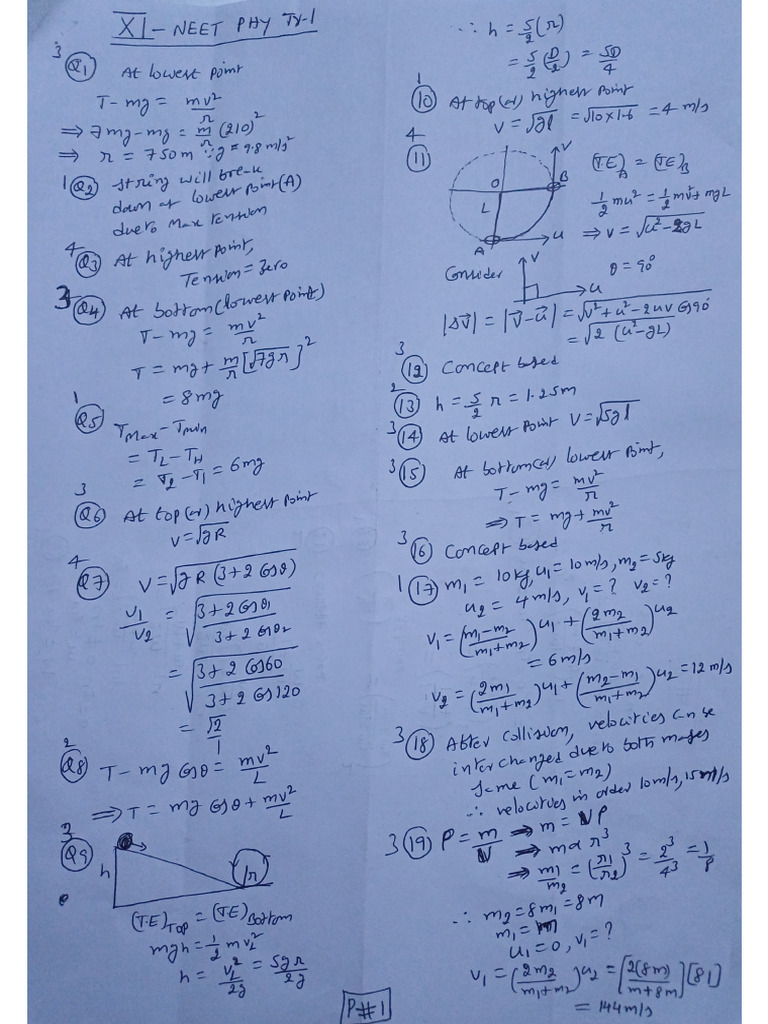 XI - NEET PHY TY-1
3
Q1 At lowest point
T-mg = mv²/r
⇒ 7mg-mg = m/r (210)²
⇒ r = 750m ∵ g = 9.8 m/s²
1 Q2 string will break
down at lowest point (A)
due to Max tension
4
Q3 At highest point,
Tension = zero
3
Q4 At bottom (lowest point)
T-mg = mv²/r
T = mg + m/r [√7gr]²
= 8mg
1
Q5 T_Max - T_min
= T_L - T_H
= T₂ - T₁ = 6mg
3
Q6 At top (or) highest point
V = √gR
4
Q7 V = √gR (3+2 cosθ)
V₁/V₂ = √(3+2 cosθ₁ / 3+2 cosθ₂)
= √(3+2 cos60 / 3+2 cos120)
= √2/1
2
Q8 T - mg cosθ = mv²/L
⇒ T = mg cosθ + mv²/L
3
Q9
h
r
(T.E)Top = (T.E)Bottom
mgh = 1/2 mv_L²
h = v_L²/2g = 5gr/2g
P#1
∴ h = 5/2 (r)
= 5/2 (D/2) = 5D/4
1
10 At top (or) highest point
V = √gl = √10×1.6 = 4 m/s
4
11
V
O
B
L
A
u
(TE)A = (TE)B
1/2 mu² = 1/2 mv² + mgL
⇒ V = √u²-2gL
Consider
V
u
θ = 90°
|ΔV| = |V-u| = √v²+u²-2uv cos90°
= √2 (u²-gL)
3
12 Concept based
2
13 h = 5/2 r = 1.25m
3 14 At lowest point V = √5gl
3 15 At bottom (or) lowest point,
T-mg = mv²/r
⇒ T = mg + mv²/r
3 16 Concept based
1 17 m₁ = 10kg, u₁ = 10m/s, m₂ = 5kg
u₂ = 4m/s, v₁ = ? v₂ = ?
v₁ = (m₁-m₂ / m₁+m₂) u₁ + (2m₂ / m₁+m₂) u₂
= 6m/s
v₂ = (2m₁ / m₁+m₂) u₁ + (m₂-m₁ / m₁+m₂) u₂ = 12 m/s
3 18 After collision, velocities can be
interchanged due to both masses
same (m₁=m₂)
∴ velocities in order 10m/s, 15m/s
3 19 ρ = m/V ⇒ m = Vρ
⇒ m α r³
⇒ m₁/m₂ = (r₁/r₂)³ = 2³/4³ = 1/8
∴ m₂ = 8m₁ = 8m
m₁ = m
u₁ = 0, v₁ = ?
v₁ = (2m₂ / m₁+m₂) u₂ = [2(8m) / m+8m] [81]
= 144m/s